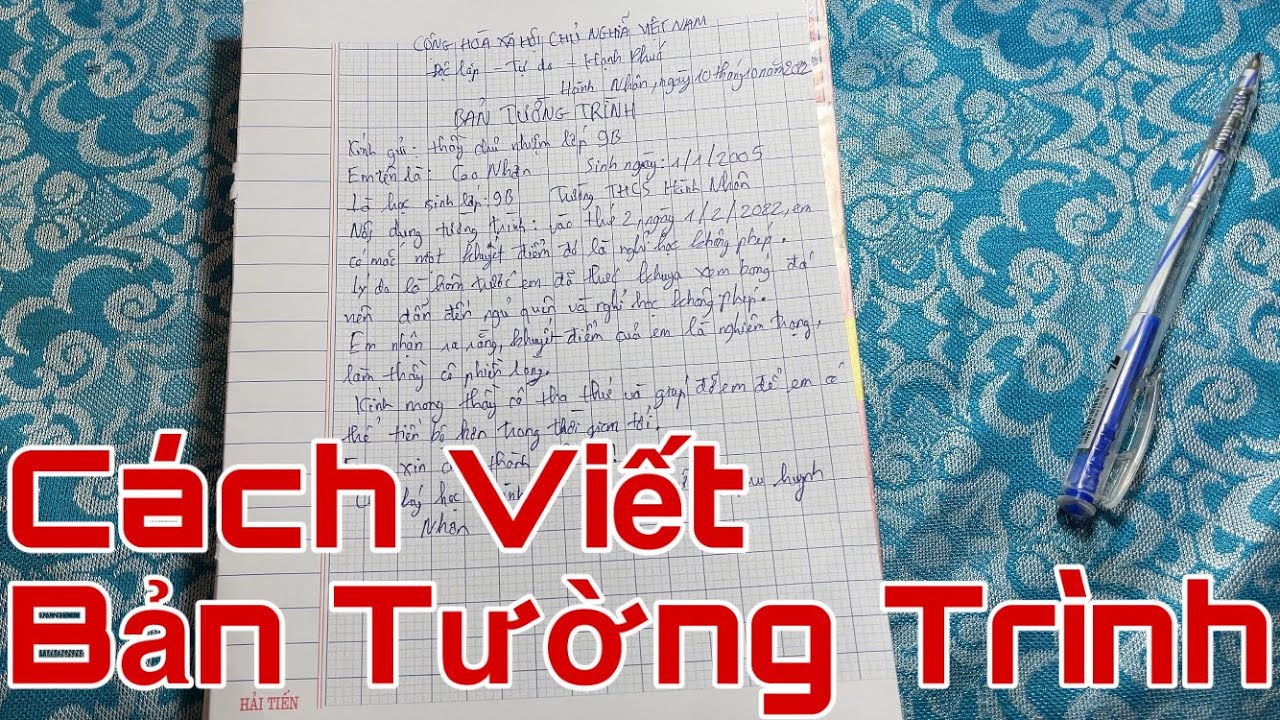 CỘNG HÒA XÃ HỘI CHỦ NGHĨA VIỆT NAM
Độc lập - Tự do - Hạnh Phúc
Hành Nhân, ngày 10 tháng 10 năm 2022
BẢN TƯỜNG TRÌNH
Kính gửi: thầy chủ nhiệm lớp 9B
Em tên là: Cao Nhận Sinh ngày: 1/1/2005
Là học sinh lớp: 9B Trường THCS Hành Nhân
Nội dung tường trình: vào thứ 2, ngày 1/2/2022, em
có mắc một khuyết điểm đó là nghỉ học không phép.
Lý do là hôm trước em đã thức khuya xem bóng đá
nên dẫn đến ngủ quên và nghỉ học không phép.
Em nhận ra rằng, khuyết điểm của em là nghiêm trọng,
làm thầy cô phiền lòng.
Kính mong thầy cô tha thứ và giúp đỡ em để em có
thể tiến bộ hơn trong thời gian tới.
xin thành
học huynh
Nhận
Cách Viết
Bản Tường Trình
HẢI TIẾN